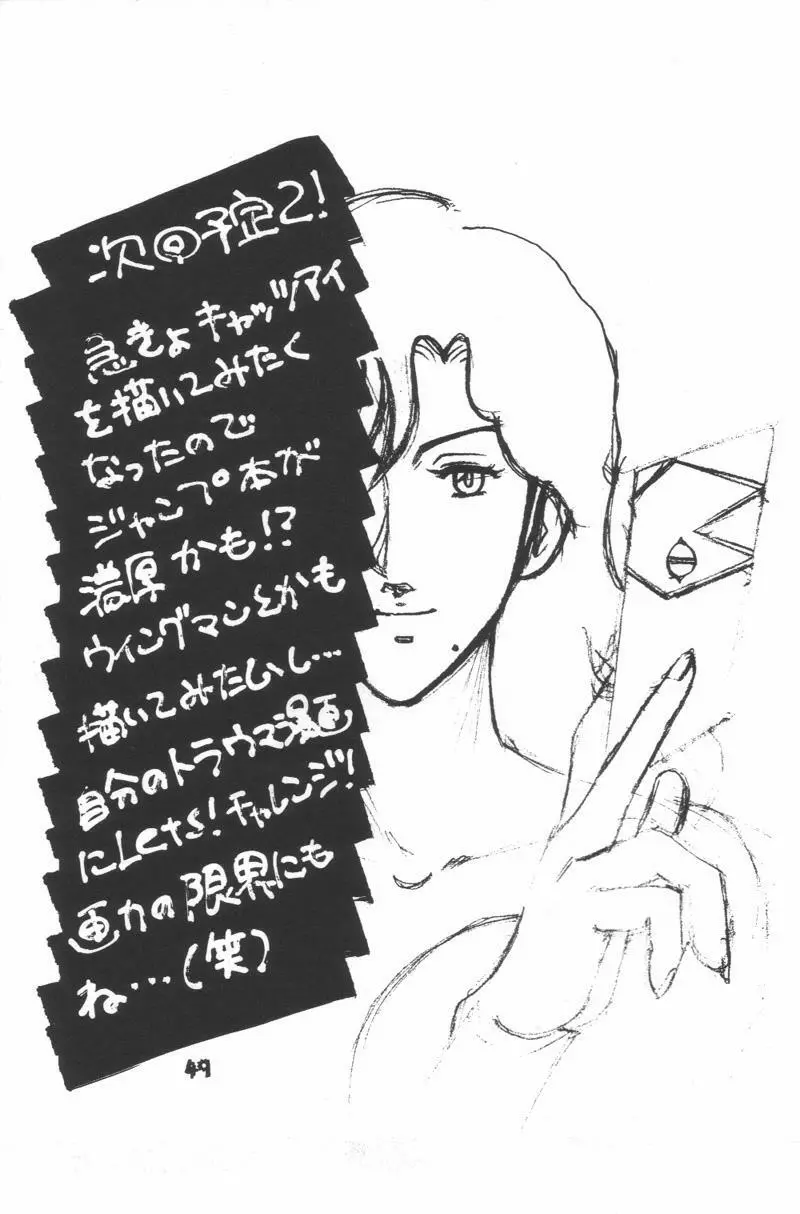 次回予定2!
急きょキャッツアイ
を描いてみたく
なったので
ジャンプ本が
濃厚かも!?
ウイングマンとかも
描いてみたいし…
自分のトラウマ漫画
にLets!チャレンジ!
画力の限界にも
ね…(笑)
49